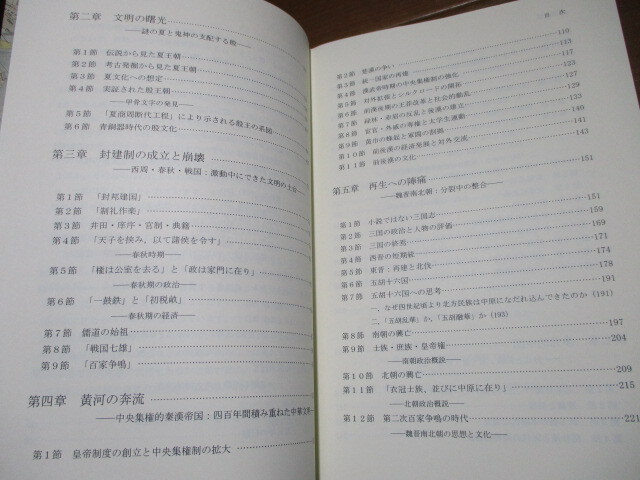 第二章 文明の曙光
――謎の夏と鬼神の支配する殷――
第1節 伝説から見た夏王朝
第2節 考古発掘から見た夏王朝
第3節 夏文化への想定
第4節 実証された殷王朝
――甲骨文字の発見――
第5節 「夏商周断代工程」により示される殷王の系図
第6節 青銅器時代の殷文化
第三章 封建制の成立と崩壊
――西周・春秋・戦国：激動中にできた文明の土台
第1節 「封邦建国」
第2節 「制礼作楽」
第3節 井田・庠序・官制・典籍
第4節 「天子を挟み、以て諸侯を令す」
――春秋時期――
第5節 「権は公室を去る」と「政は家門に在り」
――春秋期の政治――
第6節 「一鼓鉄」と「初税畝」
――春秋期の経済――
第7節 儒道の始祖
第8節 「戦国七雄」
第9節 「百家争鳴」
第四章 黄河の奔流
――中央集権的秦漢帝国：四百年間積み重ねた中華文
第1節 皇帝制度の創立と中央集権制の拡大
目 次
第2節 楚漢の争い 110
第3節 統一国家の再建 113
第4節 漢武帝時期の中央集権制の強化 115
第5節 対外拡張とシルクロードの開拓 123
第6節 前漢後期の王莽改革と社会的動乱 125
第7節 緑林・赤眉の反乱と後漢の建立 127
第8節 宦官・外戚の専権と太学生運動 129
第9節 黄巾の蜂起と軍閥の割拠 131
第10節 前後漢の経済発展と対外交流 133
第11節 前後漢の文化 143
第五章 再生への陣痛 151
――魏晋南北朝：分裂中の整合――
第1節 小説ではない三国志 151
第2節 三国の政治と人物の評価 159
第3節 三国の終焉 169
第4節 西晋の短期統 171
第5節 東晋：再建と北伐 174
第6節 五胡十六国 178
第7節 五胡十六国への思考
一、なぜ四世紀頃より北方民族は中原になだれ込んできたのか (191)
二、「五胡乱華」か、「五胡融華」か (193)
第8節 南朝の興亡 197
第9節 士族・庶族・皇帝権 204
――南朝政治概説――
第10節 北朝の興亡 209
第11節 「衣冠士族、並びに中原に在り」 215
――北朝政治概説――
第12節 第二次百家争鳴の時代 221
――魏晋南北朝の思想と文化――